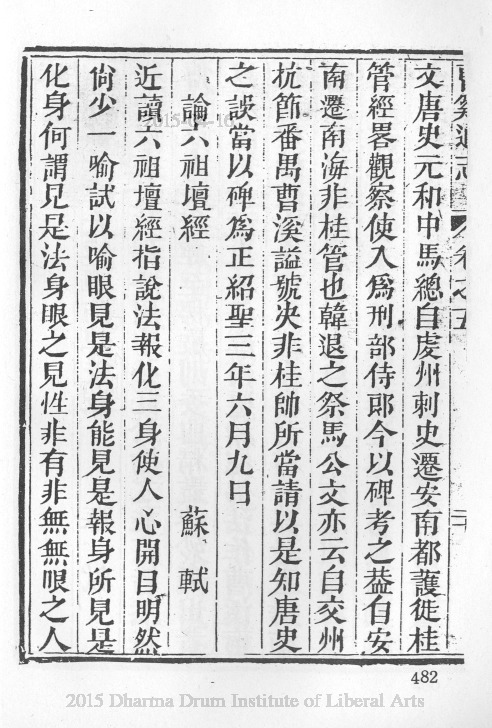 曹溪通志 卷之五
文唐史元和中馬總自虔州刺史遷安南都護徙桂
管經畧觀察使入爲刑部侍郎今以碑考之葢自安
南遷南海非桂管也韓退之祭馬公文亦云自交州
抗節番禺曹溪謚號决非桂帥所當請以是知唐史
之誤當以碑爲正紹聖三年六月九日
論六祖壇經 蘇軾
近讀六祖壇經指說法報化三身使人心開目明然
尙少一喻試以喻眼見是法身能見是報身所見是
化身何謂見是法身眼之見性非有非無無眼之人
482
2015 Dharma Drum Institute of Liberal Arts